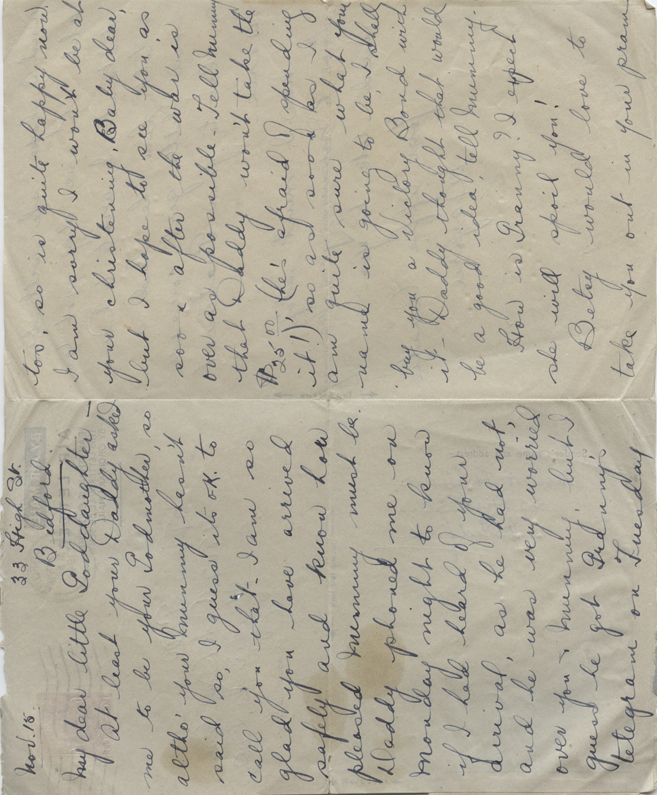 Nov. 15
33 High St.
Bedford.
My dear little Goddaughter—
At least your Daddy asked
me to be your Godmother, so
altho' your mummy hasn't
said so, I guess its o.k. to
call you that. I am so
glad you have arrived
safely and know how
pleased Mummy must be.
Daddy phoned me on
Monday night to know
if I had heard of your
arrival, as he had not,
and he was very worried
over you & Mummy, but I
guess he got Granny's
telegram on Tuesday
too, so is quite happy now.
I am sorry I won't be at
your christening, Baby dear,
but I hope to see you as
soon after the war is
over as possible - Tell Mummy
that Daddy won't take the
$25.00 (he's afraid of spending
it!), so as soon as I
am quite sure what your
name is going to be, I shall
buy you a Victory Bond with
it - Daddy thought that would
be a good idea, tell Mummy.
How is Granny? I expect
she will spoil you!
Betsy would love to
take you out in your pram